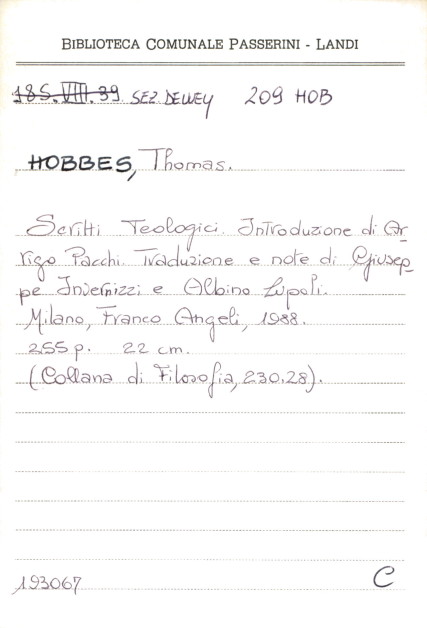 BIBLIOTECA COMUNALE PASSERINI - LANDI
18S.VIII.39 SEZ DEWEY 209 HOB
HOBBES, Thomas.
Scritti Teologici. Introduzione di Ar-
rigo Pacchi. Traduzione e note di Giusep-
pe Invernizzi e Albino Lupoli.
Milano, Franco Angeli, 1988.
255 p. 22 cm.
(Collana di Filosofia, 230.28).
193067 C